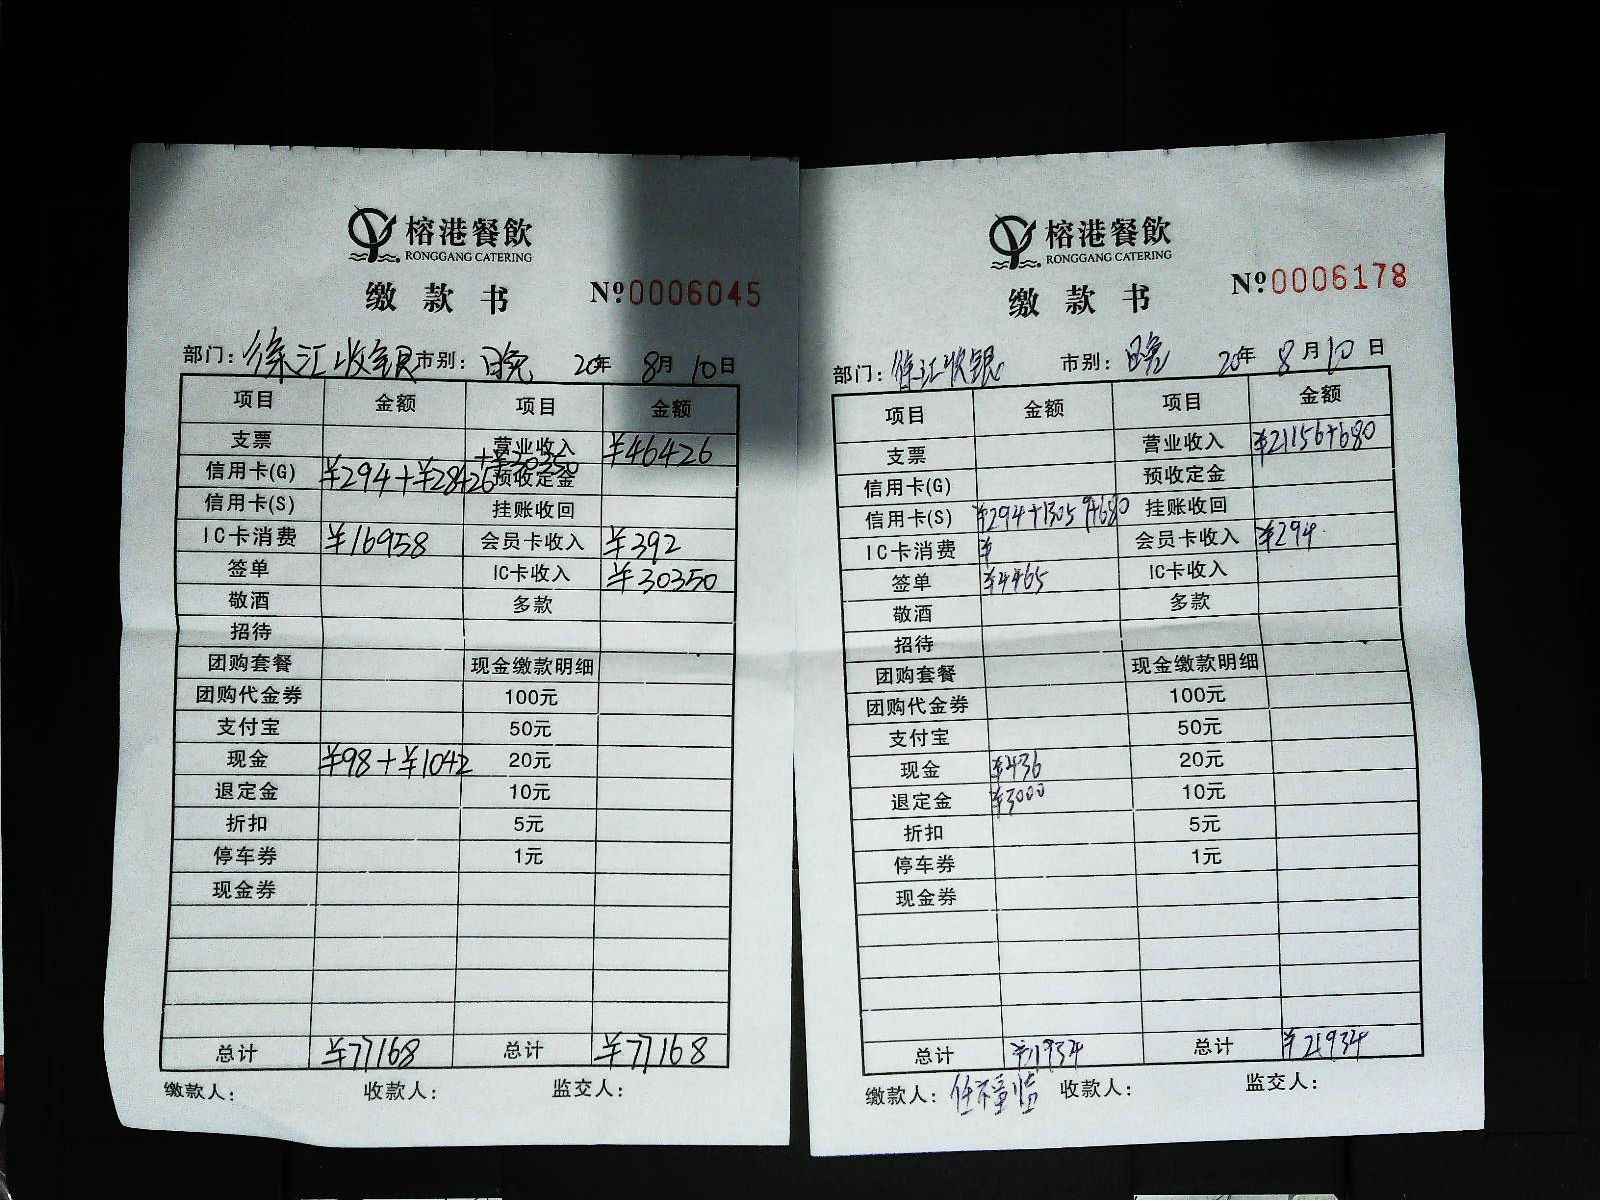 榕港餐飲
RONGGANG CATERING
缴款书
Nº0006045
部门：徐汇收银 市别：晚 20年 8月10日
项目 金额 项目 金额
支票 营业收入 ¥46426
信用卡(G) ¥294+¥28426+¥30350 预收定金
信用卡(S) 挂账收回
IC卡消费 ¥16958 会员卡收入 ¥392
签单 IC卡收入 ¥30350
敬酒 多款
招待
团购套餐 现金缴款明细
团购代金券 100元
支付宝 50元
现金 ¥98+¥1042 20元
退定金 10元
折扣 5元
停车券 1元
现金券
总计 ¥77168 总计 ¥77168
缴款人： 收款人： 监交人：
榕港餐飲
RONGGANG CATERING
缴款书
Nº0006178
部门：徐汇收银 市别：晚 20年 8月10日
项目 金额 项目 金额
支票 营业收入 ¥21156+680
信用卡(G) 预收定金
信用卡(S) ¥294+13059+680 挂账收回
IC卡消费 ¥ 会员卡收入 ¥294
签单 ¥4465 IC卡收入
敬酒 多款
招待
团购套餐 现金缴款明细
团购代金券 100元
支付宝 50元
现金 ¥436 20元
退定金 ¥3000 10元
折扣 5元
停车券 1元
现金券
总计 ¥21934 总计 ¥21934
缴款人： 收款人： 监交人：